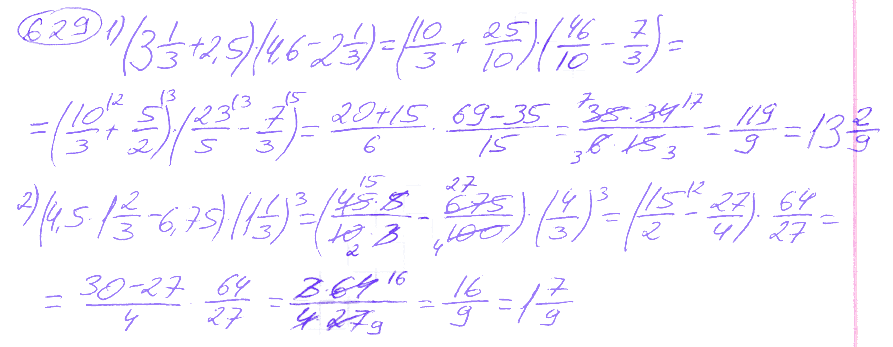 629 1) (3 1/3 + 2,5) · (4,6 − 2 1/3) = (10/3 + 25/10) · (46/10 − 7/3) =
= (10/3 ⁽² + 5/2 ⁽³) · (23/5 ⁽³ − 7/3 ⁽⁵) = 20+15/6 · 69−35/15 = ⁷35 · 34 ¹⁷/₃6 · 15 ₃ = 119/9 = 13 2/9
2) (4,5 · 1 2/3 − 6,75) · (1 1/3)³ = (¹⁵45 · 5/10 ₂ · 3 − ²⁷675/₄100) · (4/3)³ = (15/2 ⁽² − 27/4) · 64/27 =
= 30−27/4 · 64/27 = 3 · 64 ¹⁶/4 · 27 ₉ = 16/9 = 1 7/9